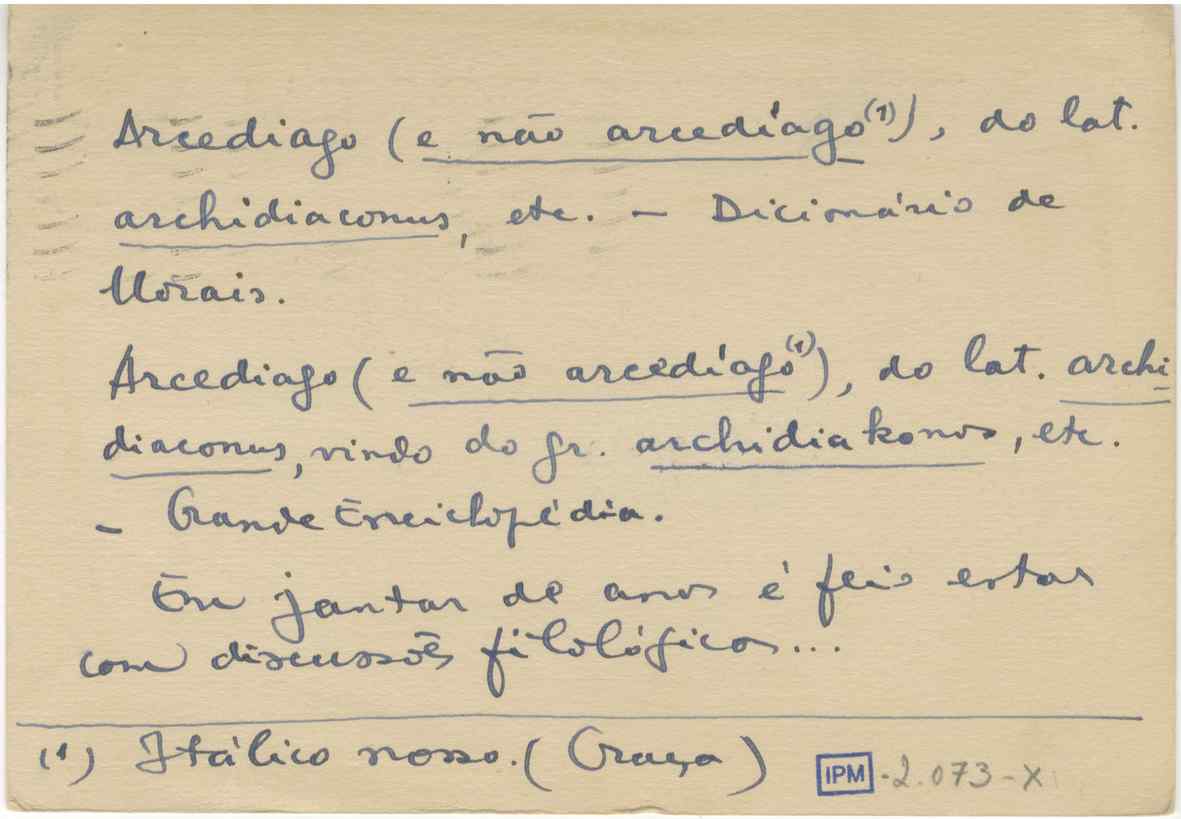 Arcediago (e não arcedíago(1)), do lat.
archidiaconus, etc. – Dicionário de
Morais.
Arcediago (e não arcedíago(1)), do lat. archi
diaconus, vindo do gr. archidiakonos, etc.
– Grande Enciclopédia.
Em jantar de anos é feio estar
com discussões filológicas...
(1) Itálico nosso. (Graça)
IPM -2.073-X